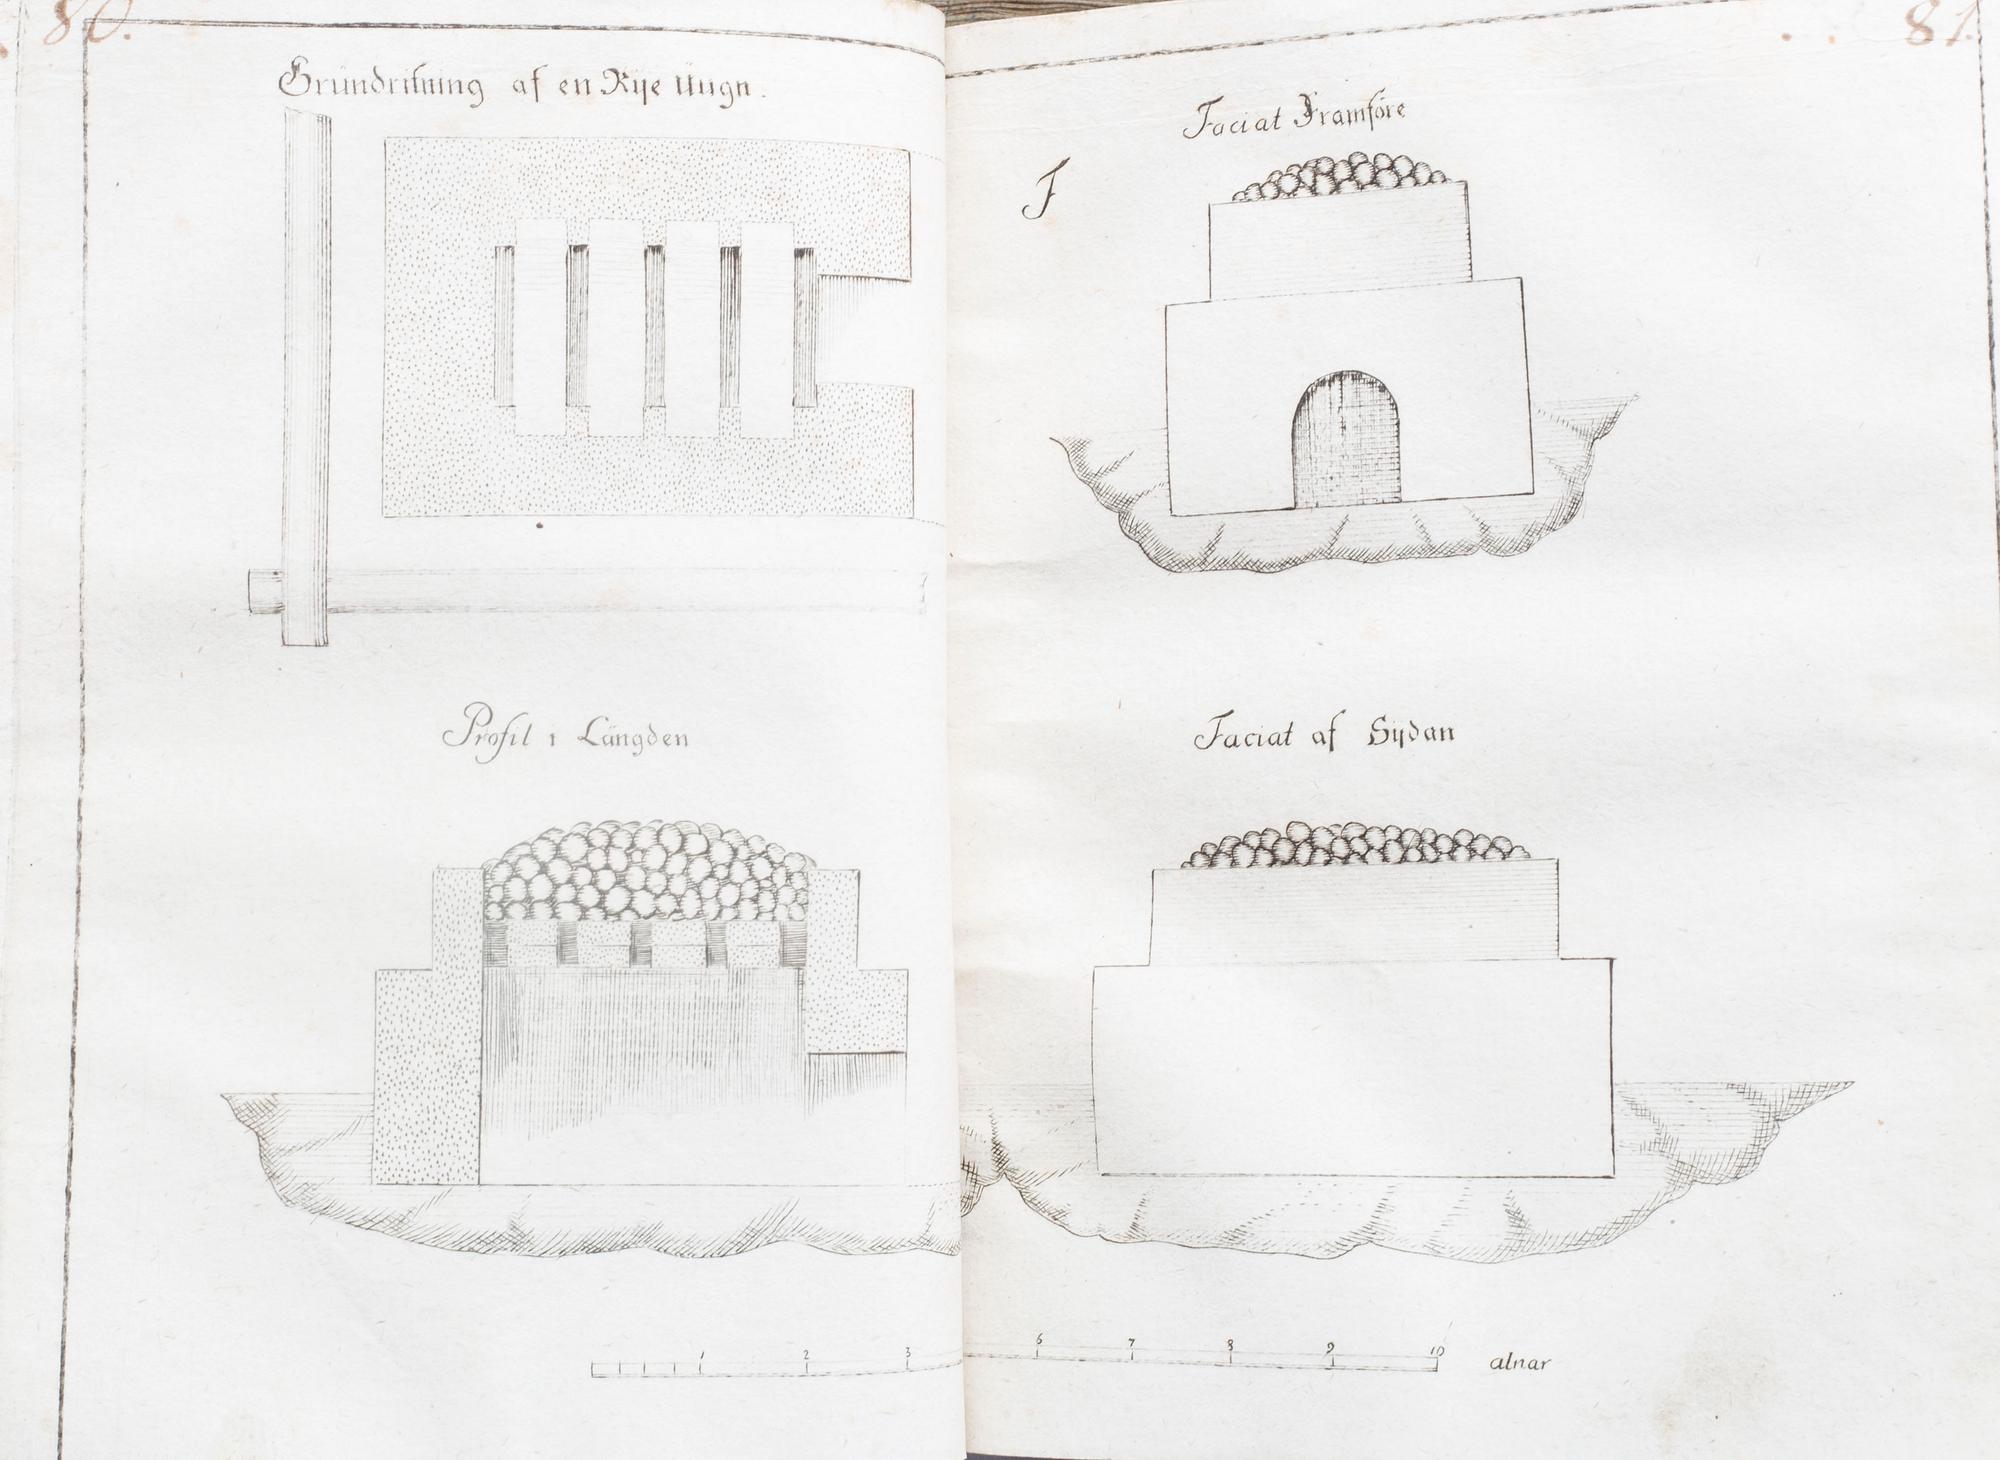 80.
Grundritning af en Rÿe Uugn.
Profil i Längden
1 2 3
81.
Faciat Framföre
F
Faciat af Sÿdan
6 7 8 9 10 alnar